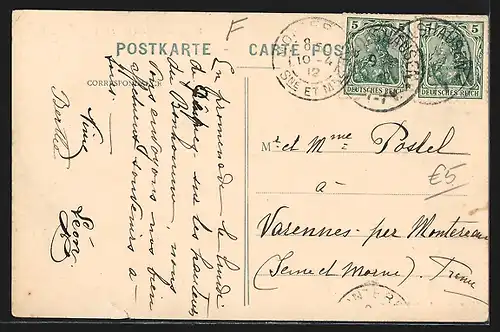 POSTKARTE CARTE POSTALE
CORRESPONDANCE
En promenade le lundi
de Pâques sur les hauteurs
du Bonhomme, nous
vous envoyons nos bien
affectueux souvenirs à
tous.
Berthe
Léon
5 5
DEUTSCHES REICH DEUTSCHES REICH
8
10-4
12
SNE ET M
Mr et Mme Postel
à
Varennes per Montereau
(Seine et Marne). France
€5